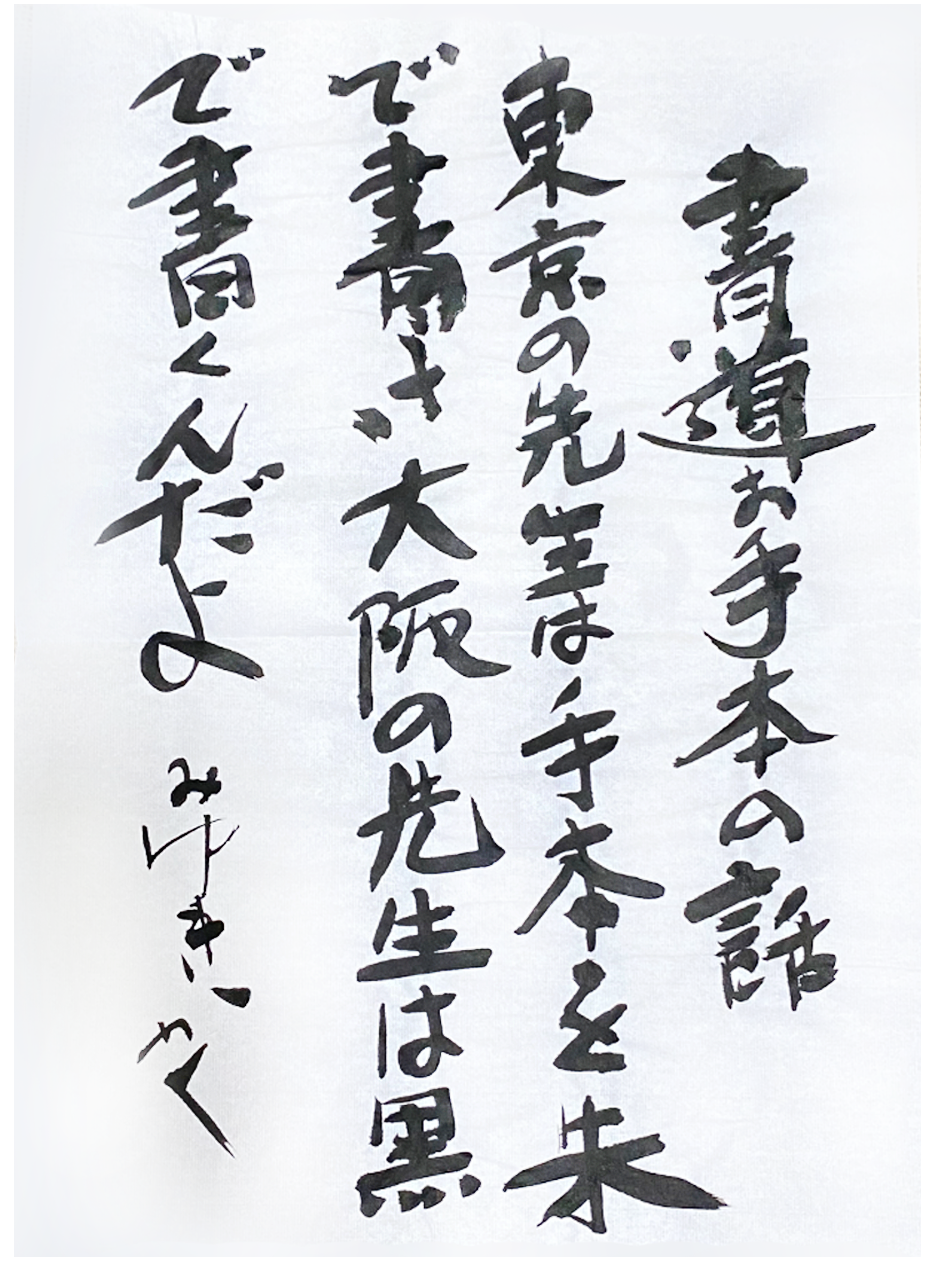 書道お手本の話
東京の先生は手本を朱
で書き大阪の先生は黒
で書くんだよ
みゆきかく